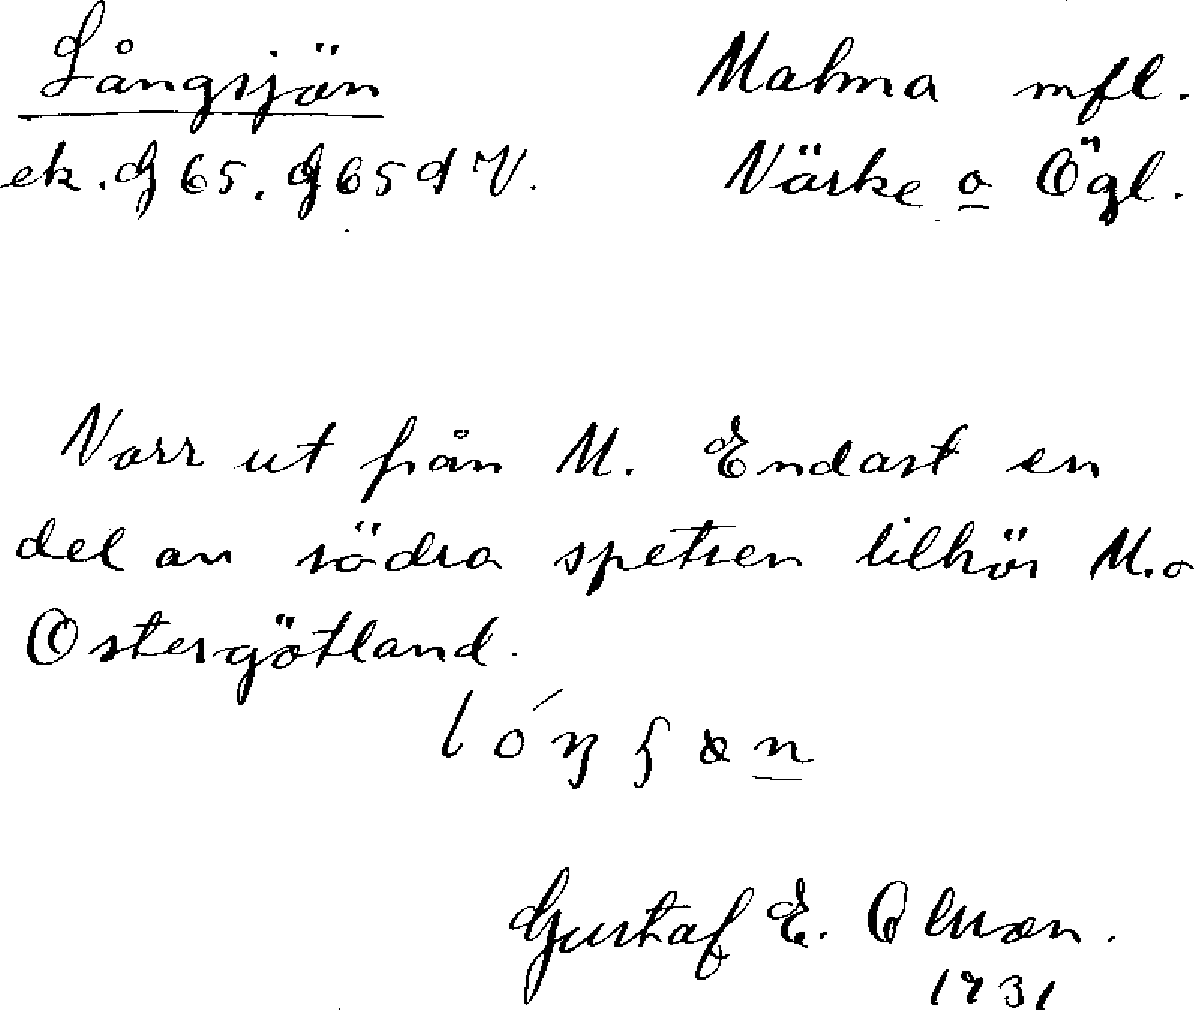 Långsjön Malma mfl.
ek. G 65. G 65 d V. Närke o Ögl.
Norr ut från M. Endast en
del av södra spetsen tilhör M. o
Östergötland.
Gustaf E. Olsson.
1931